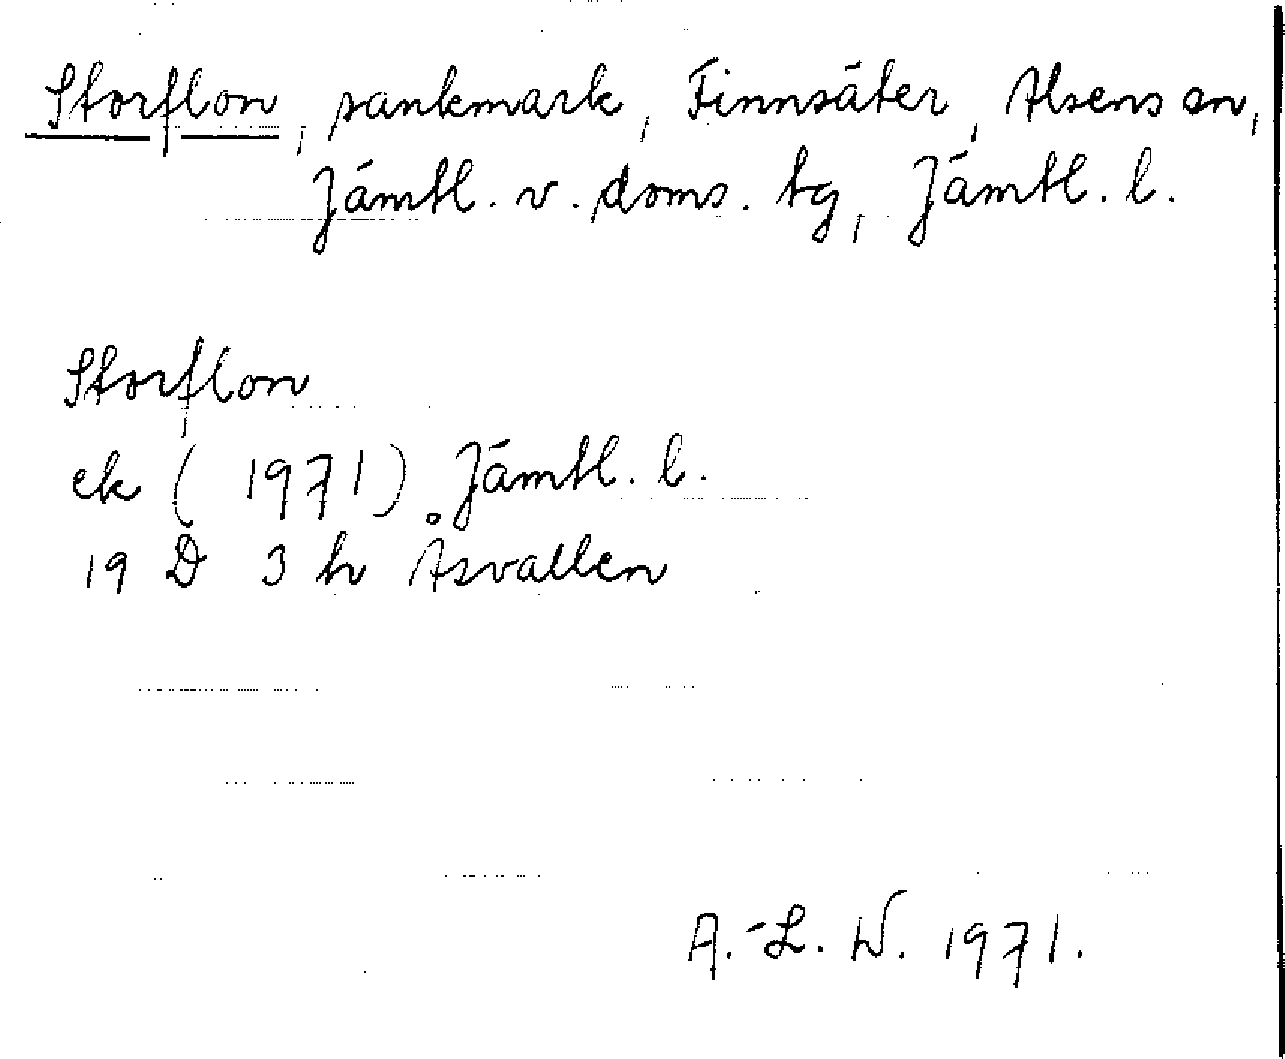 Storflon, sankmark, Finnsäter, Alsens sn,
Jämtl. v. doms. tg, Jämtl. l.
Storflon
ek (1971) Jämtl. l.
19 D 3 h Åsvallen
A.-L. W. 1971.